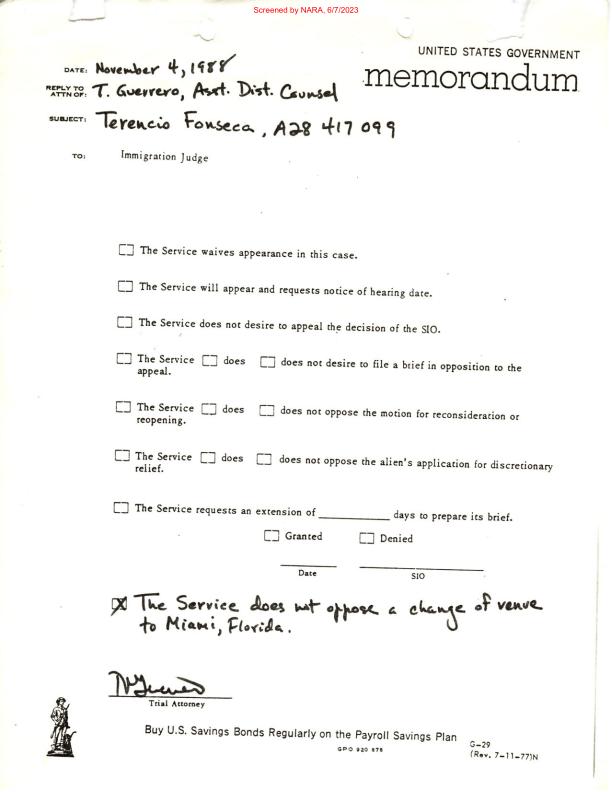 Screened by NARA, 6/7/2023
UNITED STATES GOVERNMENT
memorandum
DATE: November 4, 1988
REPLY TO ATTN OF: T. Guerrero, Asst. Dist. Counsel
SUBJECT: Terencio Fonseca, A28 417 099
TO: Immigration Judge
The Service waives appearance in this case.
The Service will appear and requests notice of hearing date.
The Service does not desire to appeal the decision of the SIO.
The Service does does not desire to file a brief in opposition to the
appeal.
The Service does does not oppose the motion for reconsideration or
reopening.
The Service does does not oppose the alien's application for discretionary
relief.
The Service requests an extension of __________ days to prepare its brief.
Granted Denied
Date SIO
The Service does not oppose a change of venue
to Miami, Florida.
Trial Attorney
Buy U.S. Savings Bonds Regularly on the Payroll Savings Plan
GPO 920 878
G-29
(Rev. 7-11-77)N